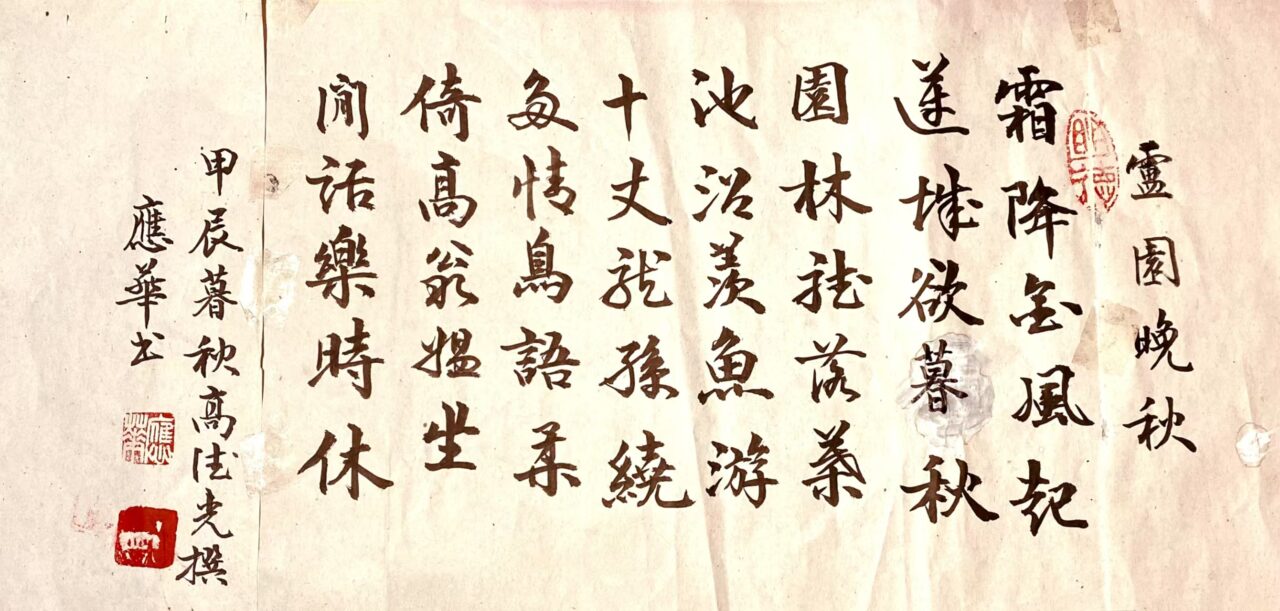 靈園晚秋
霜降金風起
蓮城欲暮秋
園林聽落葉
池沼羨魚游
十丈龍孫繞
多情鳥語柔
倚高翁媼坐
閒話樂時休
甲辰暮秋高德光撰
應華书
應華